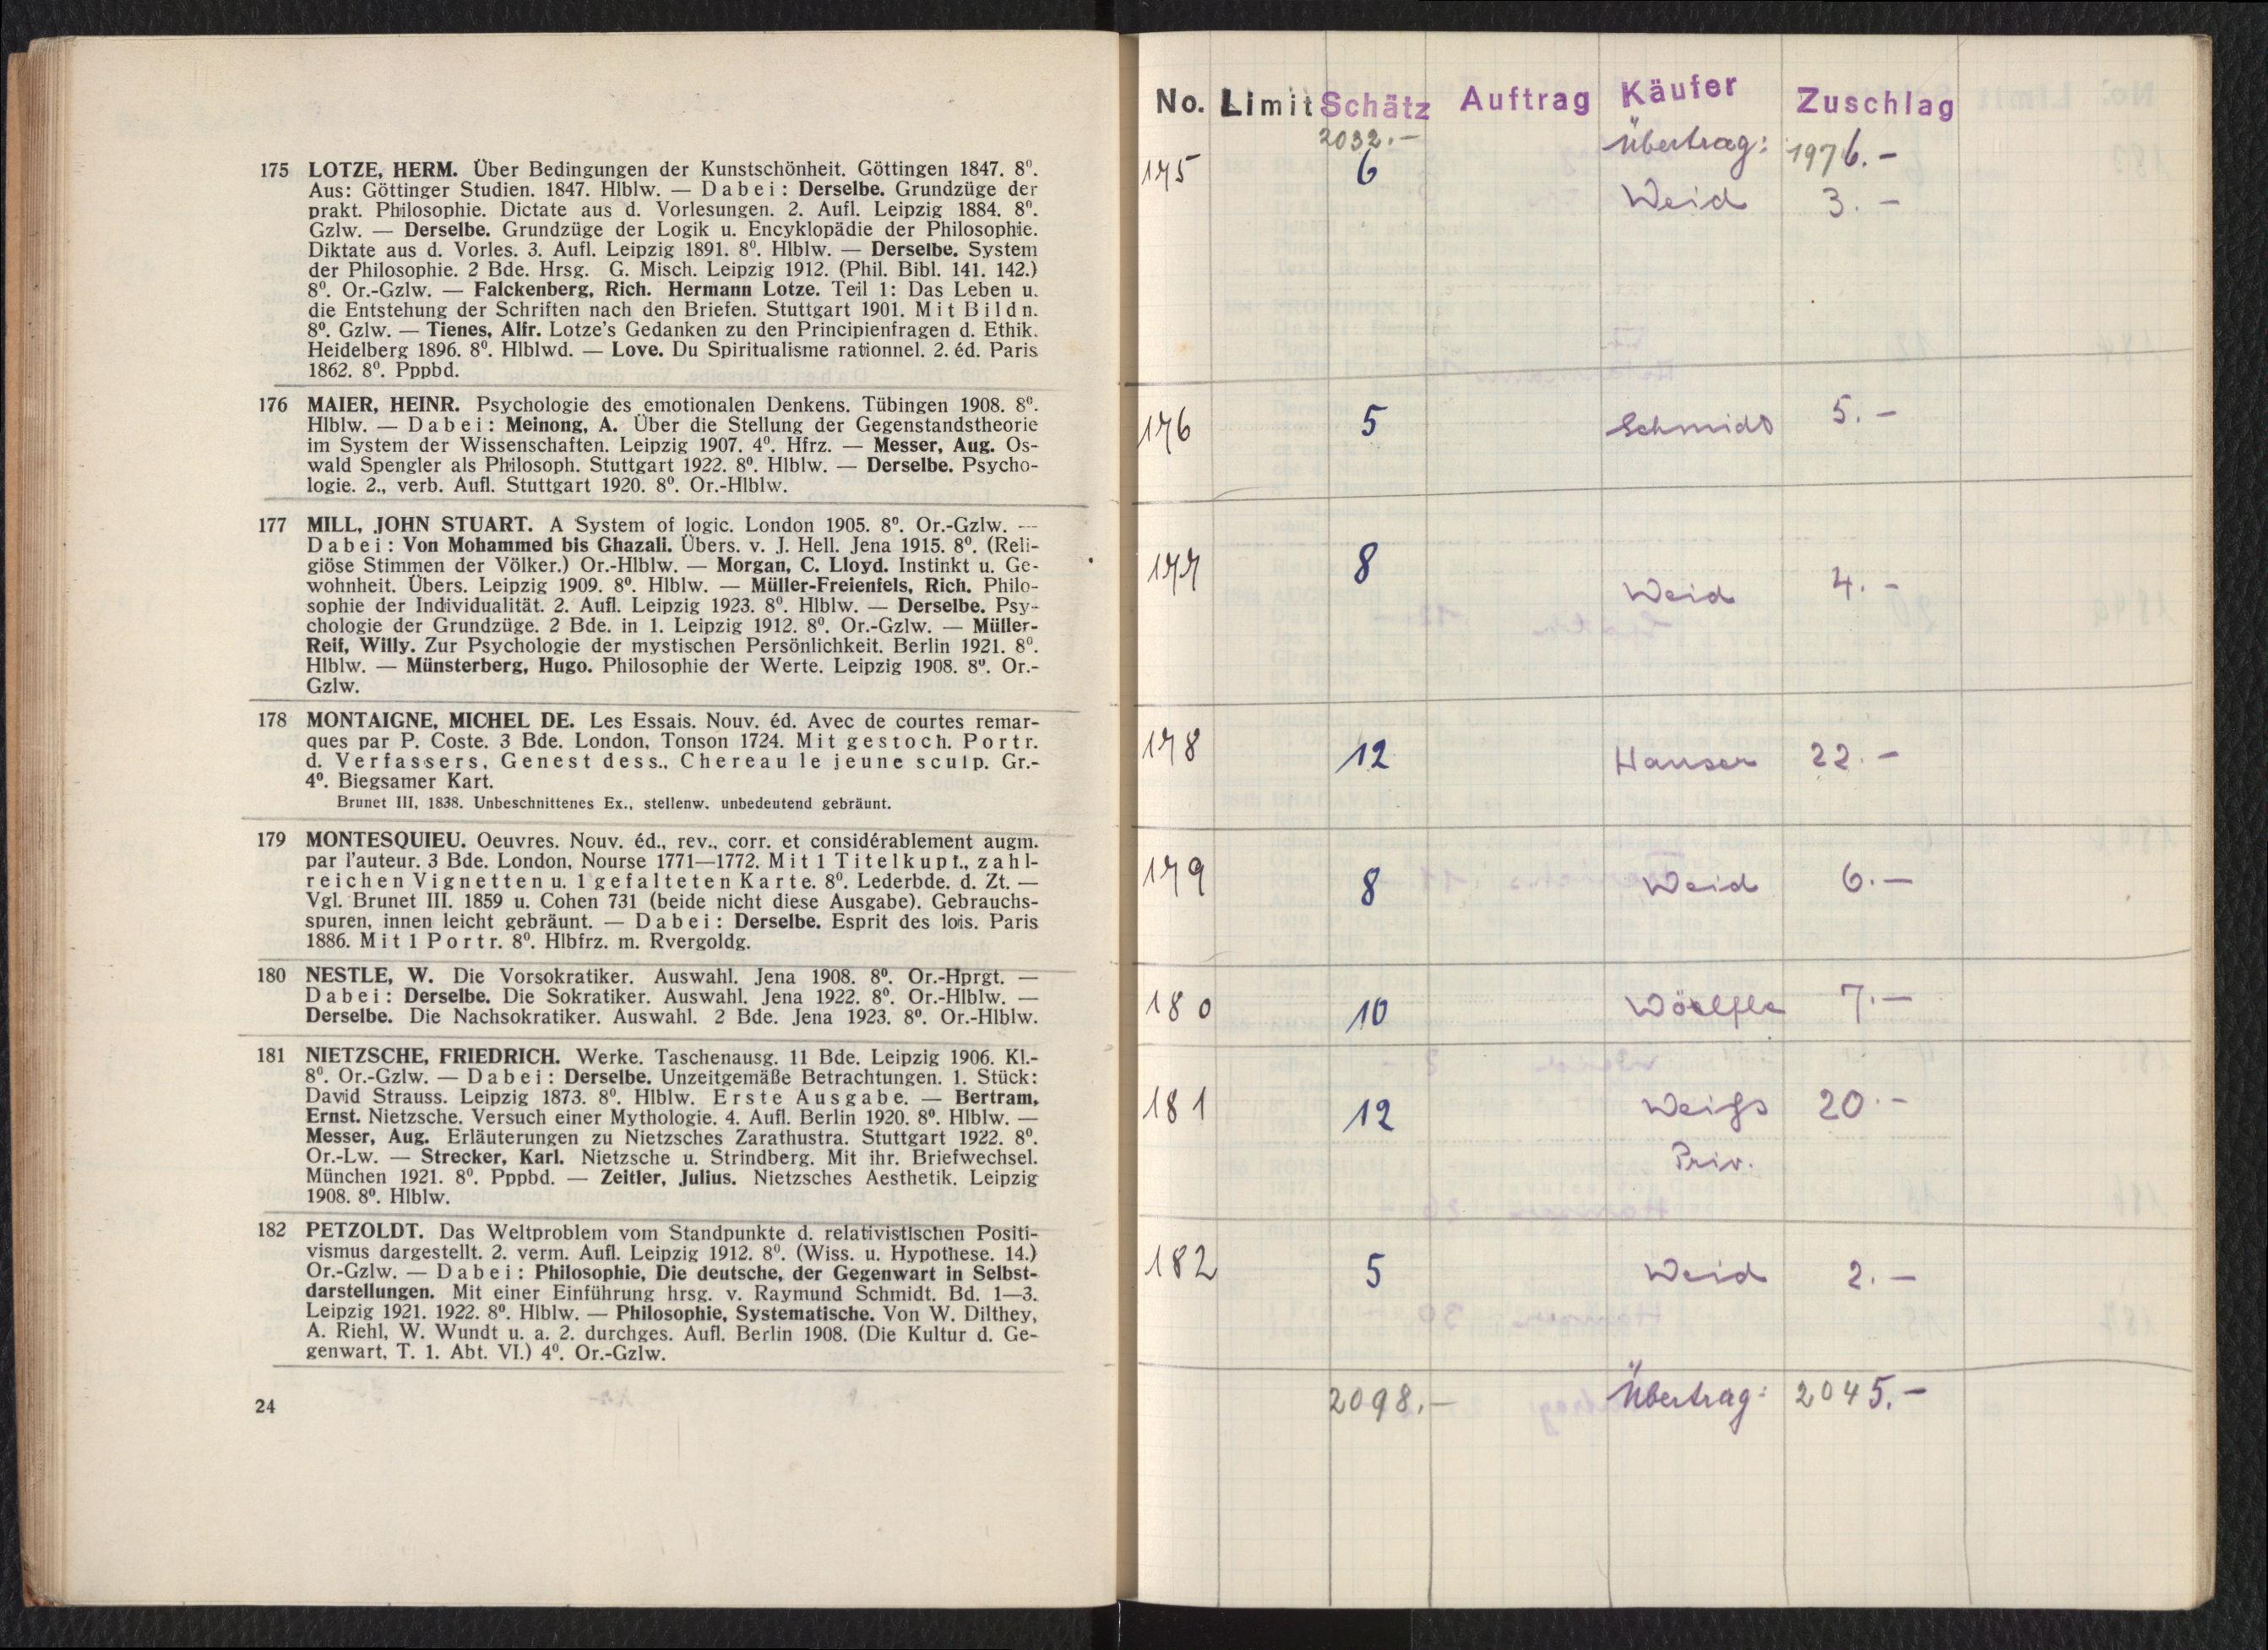 175 LOTZE, HERM. Über Bedingungen der Kunstschönheit. Göttingen 1847. 8⁰.
Aus: Göttinger Studien. 1847. Hlblw. — Dabei: Derselbe. Grundzüge der
prakt. Philosophie. Dictate aus d. Vorlesungen. 2. Aufl. Leipzig 1884. 8⁰.
Gzlw. — Derselbe. Grundzüge der Logik u. Encyklopädie der Philosophie.
Diktate aus d. Vorles. 3. Aufl. Leipzig 1891. 8⁰. Hlblw. — Derselbe. System
der Philosophie. 2 Bde. Hrsg. G. Misch. Leipzig 1912. (Phil. Bibl. 141. 142.)
8⁰. Or.-Gzlw. — Falckenberg, Rich. Hermann Lotze. Teil 1: Das Leben u.
die Entstehung der Schriften nach den Briefen. Stuttgart 1901. Mit Bildn.
8⁰. Gzlw. — Tienes, Alfr. Lotze's Gedanken zu den Principienfragen d. Ethik.
Heidelberg 1896. 8⁰. Hlblwd. — Love. Du Spiritualisme rationnel. 2. éd. Paris
1862. 8⁰. Pppbd.
176 MAIER, HEINR. Psychologie des emotionalen Denkens. Tübingen 1908. 8⁰.
Hlblw. — Dabei: Meinong, A. Über die Stellung der Gegenstandstheorie
im System der Wissenschaften. Leipzig 1907. 4⁰. Hfrz. — Messer, Aug. Os-
wald Spengler als Philosoph. Stuttgart 1922. 8⁰. Hlblw. — Derselbe. Psycho-
logie. 2., verb. Aufl. Stuttgart 1920. 8⁰. Or.-Hlblw.
177 MILL, JOHN STUART. A System of logic. London 1905. 8⁰. Or.-Gzlw. —
Dabei: Von Mohammed bis Ghazali. Übers. v. J. Hell. Jena 1915. 8⁰. (Reli-
giöse Stimmen der Völker.) Or.-Hlblw. — Morgan, C. Lloyd. Instinkt u. Ge-
wohnheit. Übers. Leipzig 1909. 8⁰. Hlblw. — Müller-Freienfels, Rich. Philo-
sophie der Individualität. 2. Aufl. Leipzig 1923. 8⁰. Hlblw. — Derselbe. Psy-
chologie der Grundzüge. 2 Bde. in 1. Leipzig 1912. 8⁰. Or.-Gzlw. — Müller-
Reif, Willy. Zur Psychologie der mystischen Persönlichkeit. Berlin 1921. 8⁰.
Hlblw. — Münsterberg, Hugo. Philosophie der Werte. Leipzig 1908. 8⁰. Or.-
Gzlw.
178 MONTAIGNE, MICHEL DE. Les Essais. Nouv. éd. Avec de courtes remar-
ques par P. Coste. 3 Bde. London, Tonson 1724. Mit gestoch. Portr.
d. Verfassers, Genest dess., Chereau le jeune sculp. Gr.-
4⁰. Biegsamer Kart.
Brunet III, 1838. Unbeschnittenes Ex., stellenw. unbedeutend gebräunt.
179 MONTESQUIEU. Oeuvres. Nouv. éd., rev., corr. et considérablement augm.
par l'auteur. 3 Bde. London, Nourse 1771—1772. Mit 1 Titelkupf., zahl-
reichen Vignetten u. 1 gefalteten Karte. 8⁰. Lederbde. d. Zt. —
Vgl. Brunet III. 1859 u. Cohen 731 (beide nicht diese Ausgabe). Gebrauchs-
spuren, innen leicht gebräunt. — Dabei: Derselbe. Esprit des lois. Paris
1886. Mit 1 Portr. 8⁰. Hlbfrz. m. Rvergoldg.
180 NESTLE, W. Die Vorsokratiker. Auswahl. Jena 1908. 8⁰. Or.-Hprgt. —
Dabei: Derselbe. Die Sokratiker. Auswahl. Jena 1922. 8⁰. Or.-Hlblw. —
Derselbe. Die Nachsokratiker. Auswahl. 2 Bde. Jena 1923. 8⁰. Or.-Hlblw.
181 NIETZSCHE, FRIEDRICH. Werke. Taschenausg. 11 Bde. Leipzig 1906. Kl.-
8⁰. Or.-Gzlw. — Dabei: Derselbe. Unzeitgemäße Betrachtungen. 1. Stück:
David Strauss. Leipzig 1873. 8⁰. Hlblw. Erste Ausgabe. — Bertram,
Ernst. Nietzsche. Versuch einer Mythologie. 4. Aufl. Berlin 1920. 8⁰. Hlblw. —
Messer, Aug. Erläuterungen zu Nietzsches Zarathustra. Stuttgart 1922. 8⁰.
Or.-Lw. — Strecker, Karl. Nietzsche u. Strindberg. Mit ihr. Briefwechsel.
München 1921. 8⁰. Pppbd. — Zeitler, Julius. Nietzsches Aesthetik. Leipzig
1908. 8⁰. Hlblw.
182 PETZOLDT. Das Weltproblem vom Standpunkte d. relativistischen Positi-
vismus dargestellt. 2. verm. Aufl. Leipzig 1912. 8⁰. (Wiss. u. Hypothese. 14.)
Or.-Gzlw. — Dabei: Philosophie, Die deutsche, der Gegenwart in Selbst-
darstellungen. Mit einer Einführung hrsg. v. Raymund Schmidt. Bd. 1—3.
Leipzig 1921. 1922. 8⁰. Hlblw. — Philosophie, Systematische. Von W. Dilthey,
A. Riehl, W. Wundt u. a. 2. durchges. Aufl. Berlin 1908. (Die Kultur d. Ge-
genwart, T. 1. Abt. VI.) 4⁰. Or.-Gzlw.
24
No. Limit Schätz Auftrag Käufer Zuschlag
2032.- Übertrag: 1976.-
175 6 Weid 3.-
176 5 Schmidt 5.-
177 8 Weid 4.-
178 12 Hauser 22.-
179 8 Weid 6.-
180 10 Wölfle 7.-
181 12 Weiss 20.-
Priv.
182 5 Weid 2.-
2098.- Übertrag: 2045.-